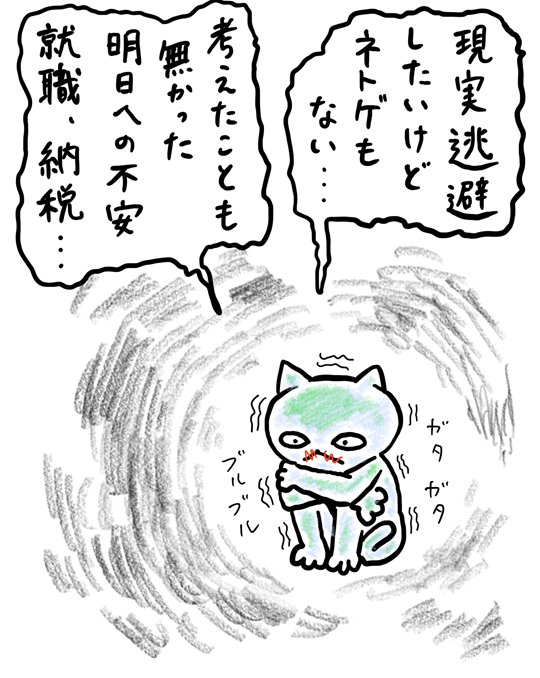 現実逃避
したいけど
ネトゲも
ない…
考えたことも
無かった
明日への不安
就職、納税…
ガタ
ガタ
ブル
ブル